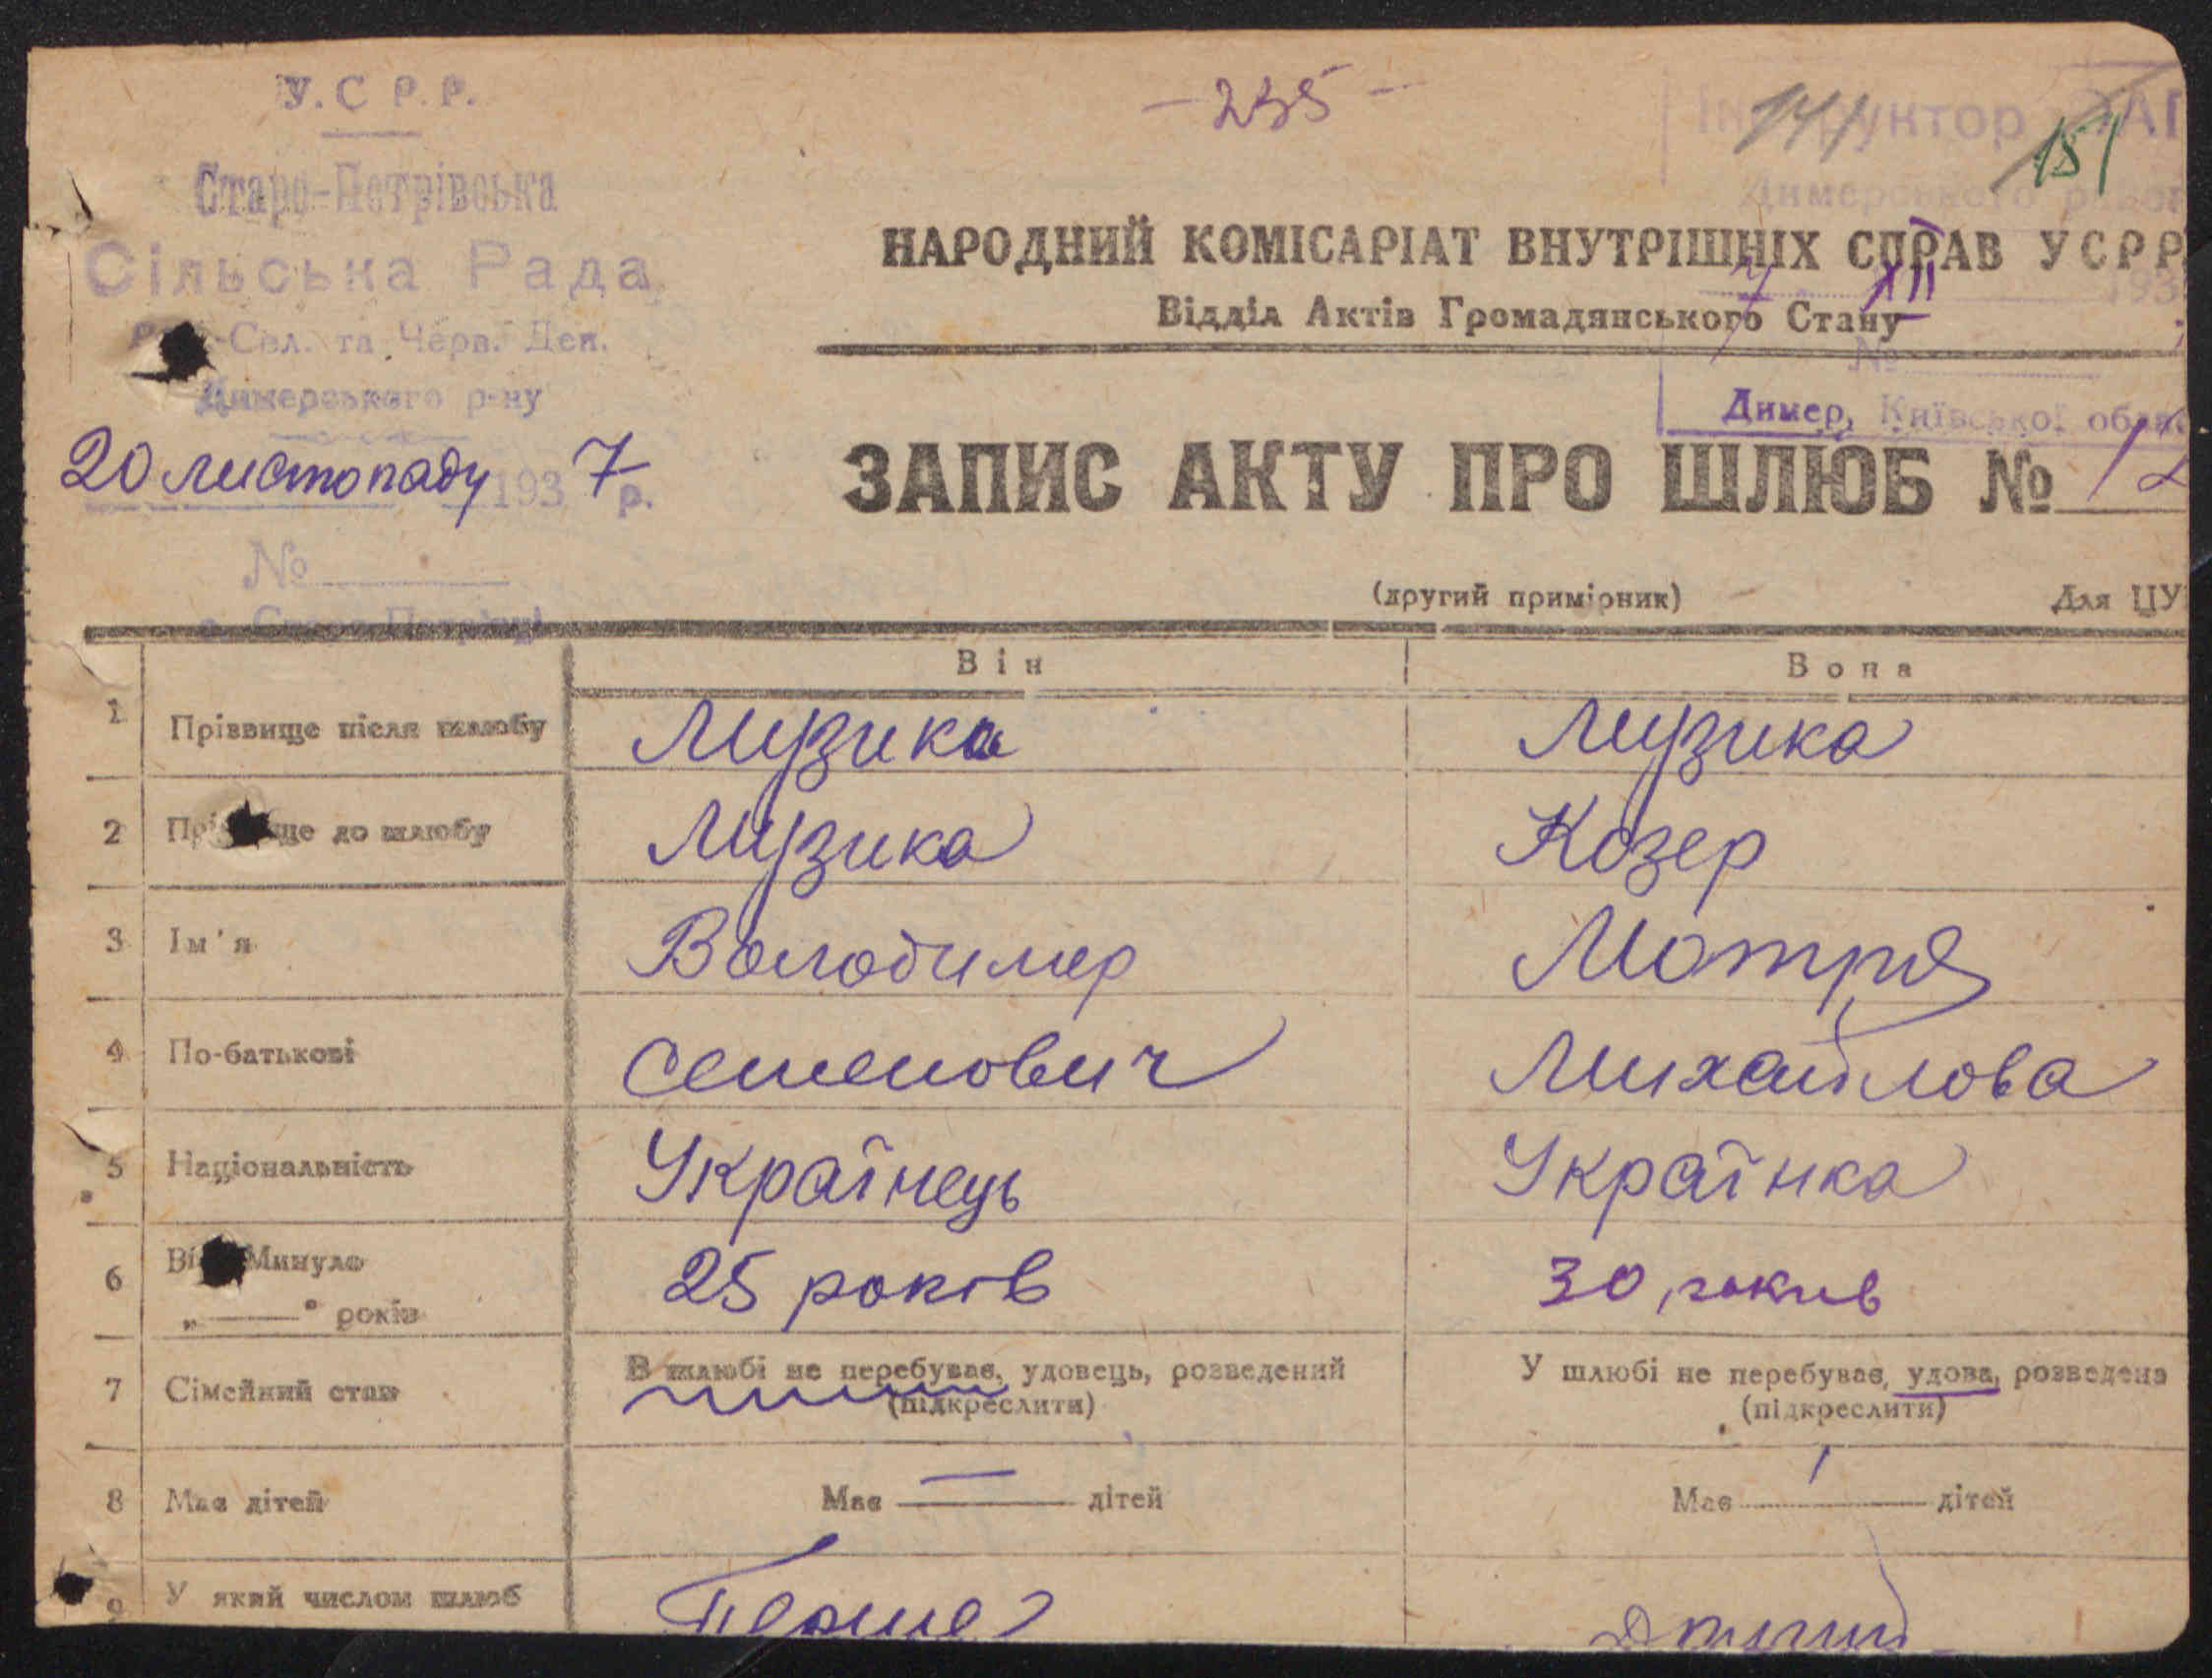 У.С Р.Р.
Старо-Петрівська
Сільська Рада
-Сел. та Черв. Деп.
Димерського р-ну
20 листопаду 1937 р.
№
с. Старо-Петрівці
- 235 -
141
151
Інструктор ЗАГ
Димерського район
7 XII 193
№
Димер, Київської обл.
НАРОДНИЙ КОМІСАРІАТ ВНУТРІШНІХ СПРАВ УСРР
Відділ Актів Громадянського Стану
ЗАПИС АКТУ ПРО ШЛЮБ № 12
(другий примірник) Для ЦУ
Він Вона
1 Прізвище після шлюбу Музика Музика
2 Прі ще до шлюбу Музика Козер
3 Ім'я Володимер Мотря
4 По-батькові Семенович Михайлова
5 Національність Українець Українка
6 Ві Минуло 25 років 30 років
„ — " років
7 Сімейний стан В шлюбі не перебуває, удовець, розведений У шлюбі не перебуває, удова, розведена
(підкреслити) (підкреслити)
8 Має дітей Має — дітей Має дітей
9 У який числом шлюб Перше Другий